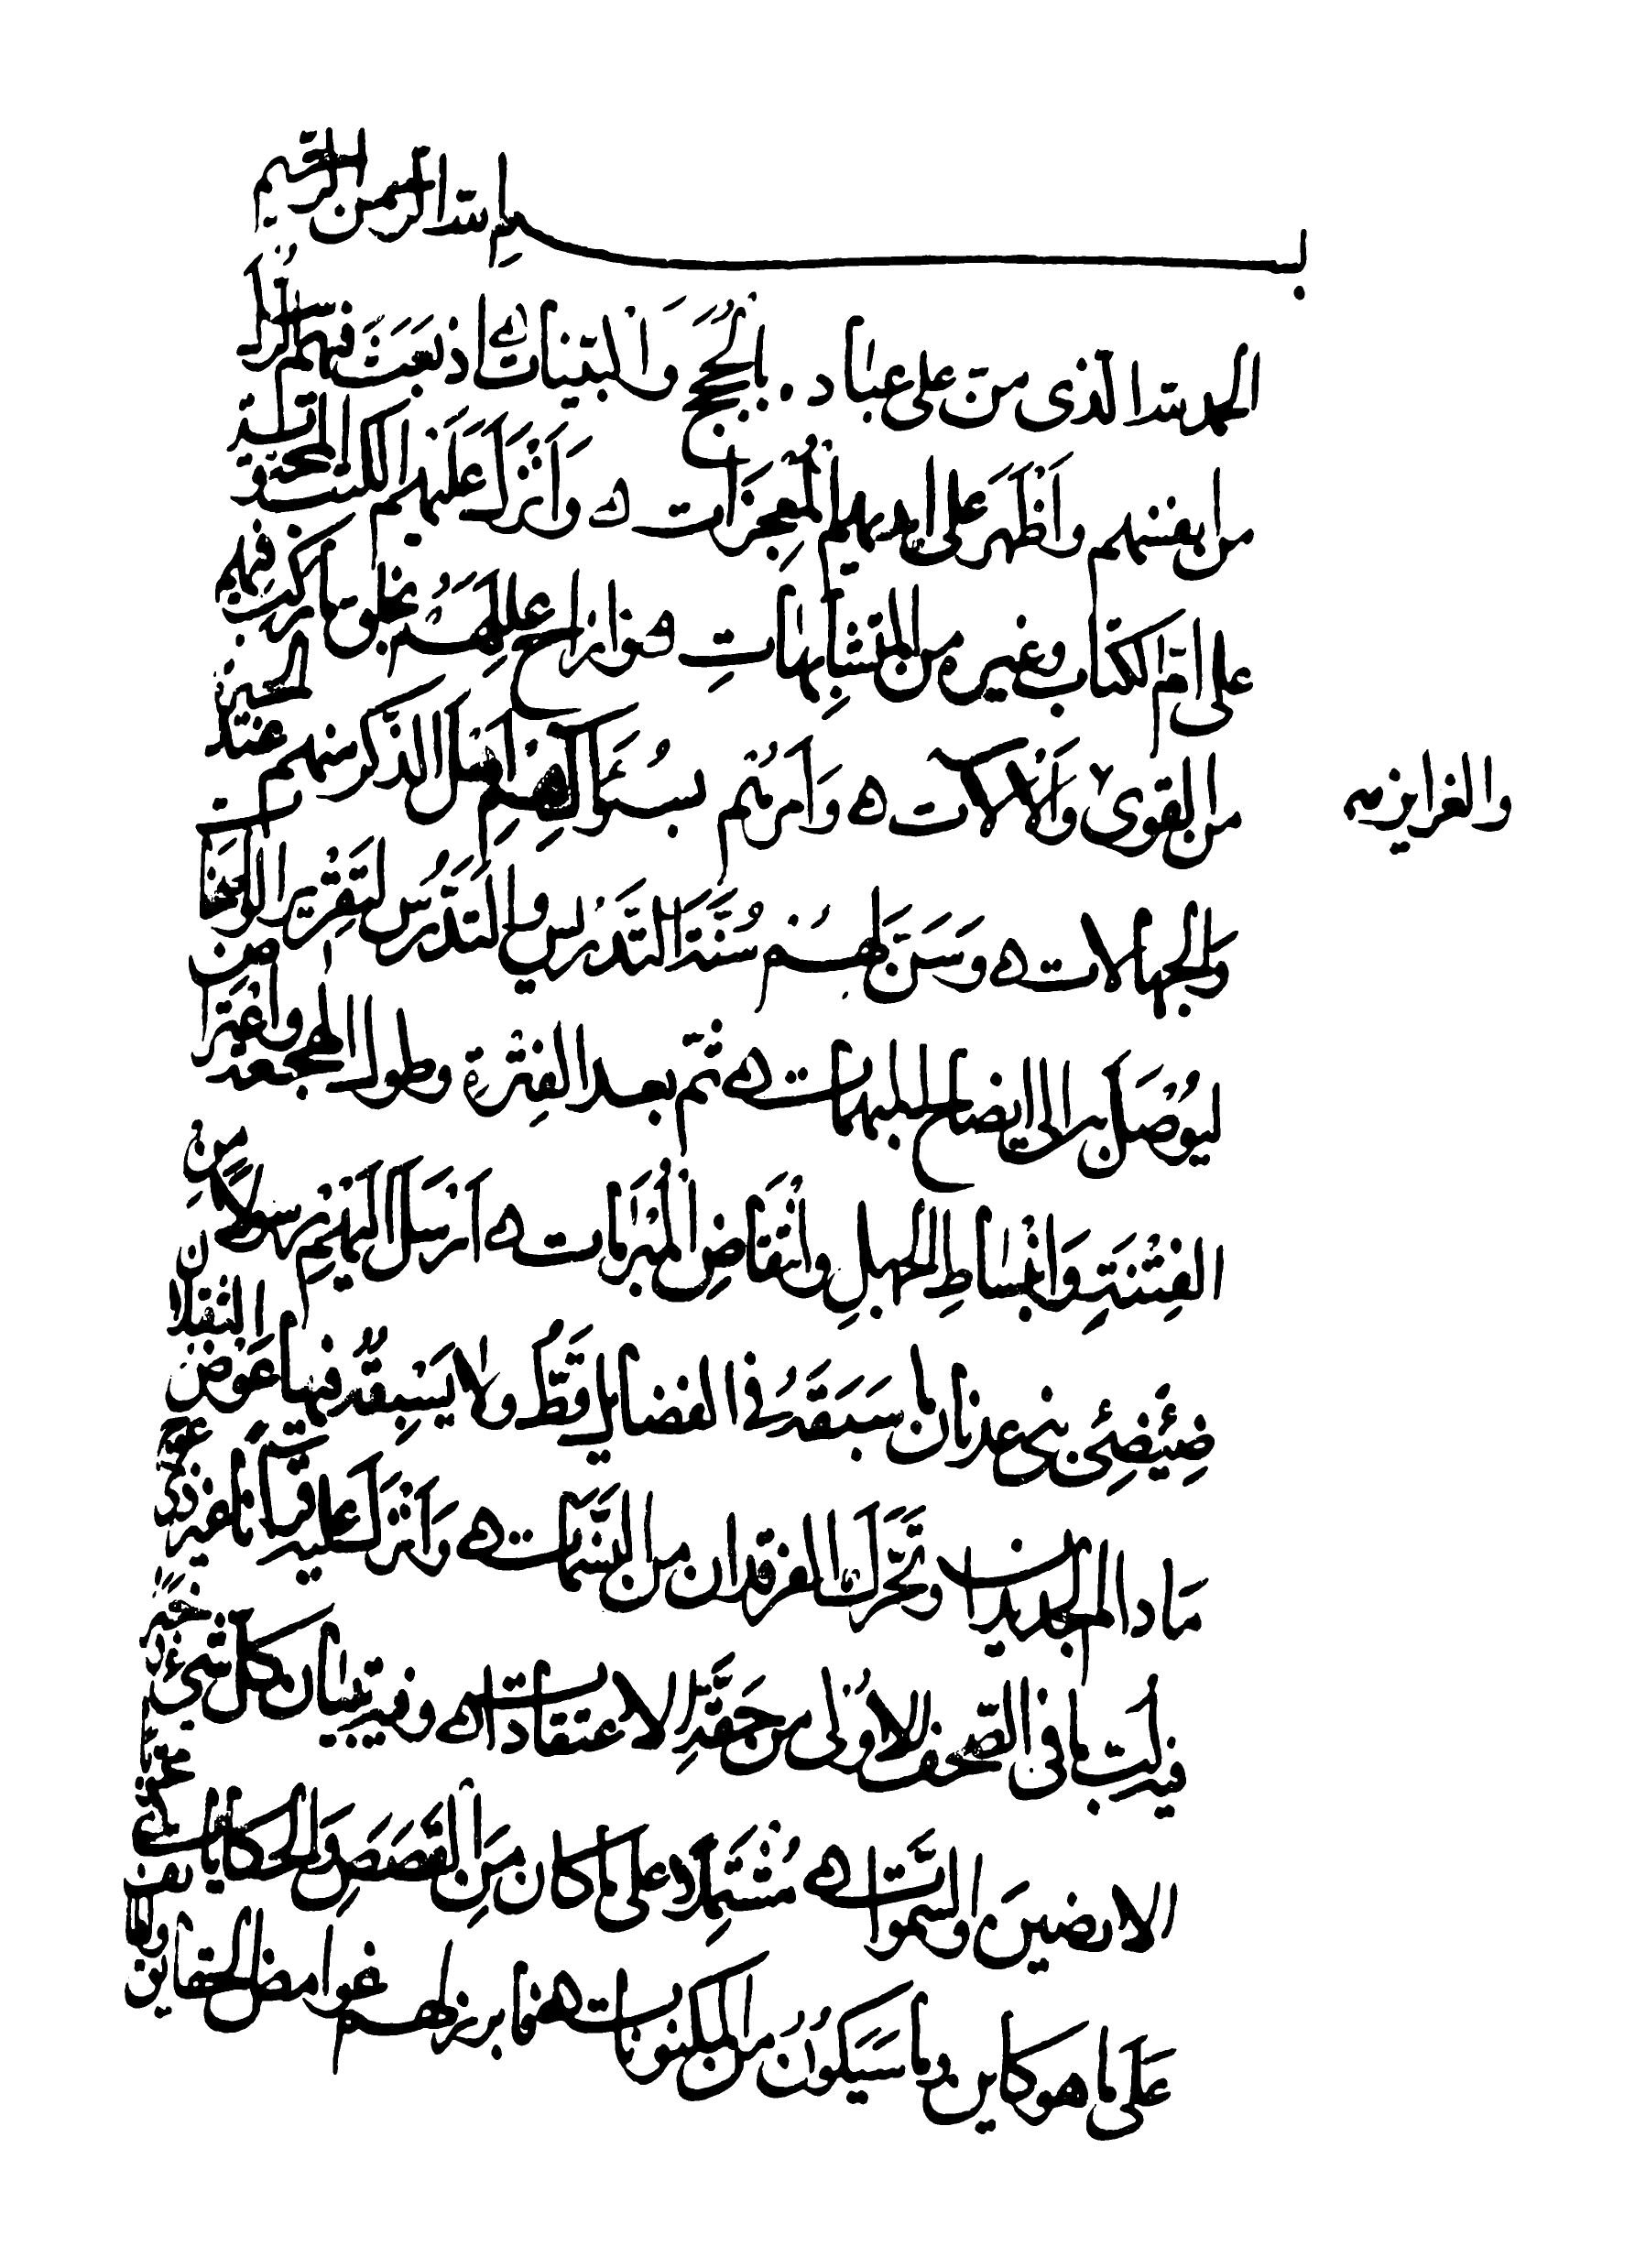 بسم الله الرحمن الرحيم
الحمد لله الذى من على عباده بالحُجَجِ وَالبَيّنات اذ بَعَثَ فيهم رُسُلًا
من انفسهم وأَظْهَرَ على ايديهم المُعجِزَات ه وَأَنْزَلَ عَلَيْهم الكتب المحتوية
على ام الكتاب وغيره من المتشابِهات ه وازاح عِلَلَهُم بخلق ما ركّب فيهم
من القوى وَالآلات ه وَأَمَرَهُم بسُؤَالِ أهل الذكر منهم عند الحيرة
وَالجهالات ه وَسَنَّ لهم سُنَّةَ التَدريس والتَدَرُّس لتقرير
ليُوصَل به الى ايضاح المبهمات ه ثمّ بعد الفترة وطول الهجعة واعتراض من
الفِتْنَةِ وَانْبِسَاطِ الجهلِ وانْتقَاضِ المُبْرَمات ه أَرْسَلَ اليهم رسولًا من
ضِئْضِئِ بنى عدنان ما سَبَقَهُ فى الفضايل قَطُّ ولا يَسبِقُهُ فيها عَوْضُ الثقلان
ما دام الجديدان وتحَرَّك الفرقدان من السَّمٰوٰت ه وَأَنْزَلَ عليه قرآنًا غير ذى عوج
فيه لُبّ ما فى الصّحف الاولى من حَقِّهِ الاعتقادات ه وفيه تبيان كل شىء
الارضينَ والسّموات ه مُشْتَمِلًا على ما كان مِنَ القَصَصِ وَالحكايات
على ما هو كاين وما سَيَكُونُ من المكنونات ه فما برز لهم غوامض الحقايق ولا
والغرايزيه